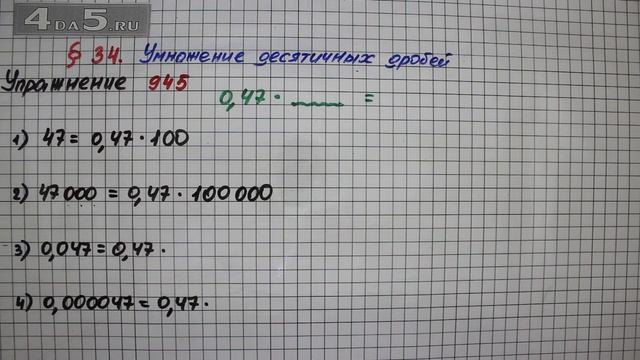 4DA5.RU
§ 34. Умножение десятичных дробей
Упражнение 945
0,47 · ____ =
1) 47 = 0,47 · 100
2) 47 000 = 0,47 · 100 000
3) 0,047 = 0,47 ·
4) 0,000047 = 0,47 ·